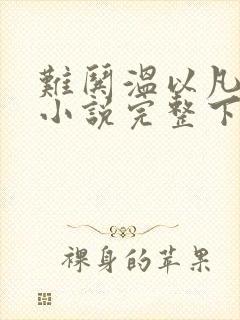 難鬨溫以凡
小說完整下
裸身的苹果